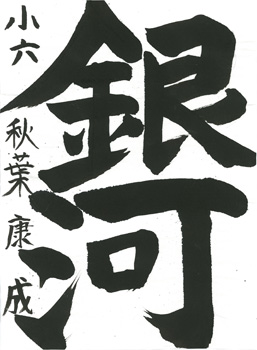 銀河
小六 秋葉康成